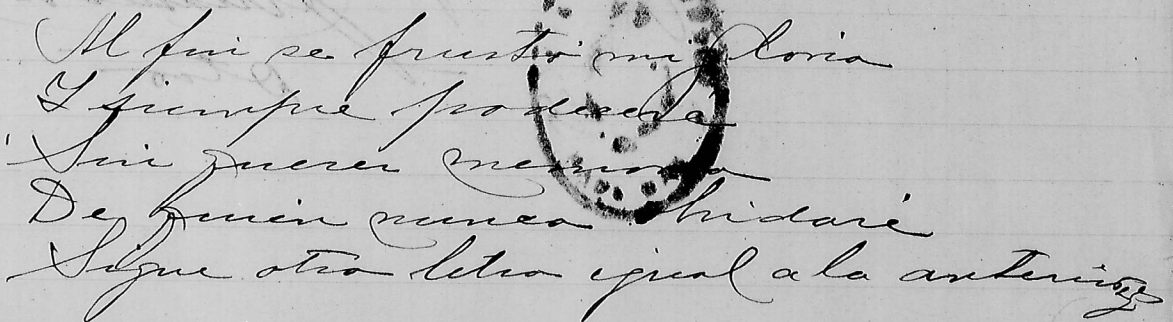 Al fin se frustó mi gloria
Y siempre padeceré
Sin querer memoria
De quien nunca olvidaré
Sigue otra letra igual a la anterior